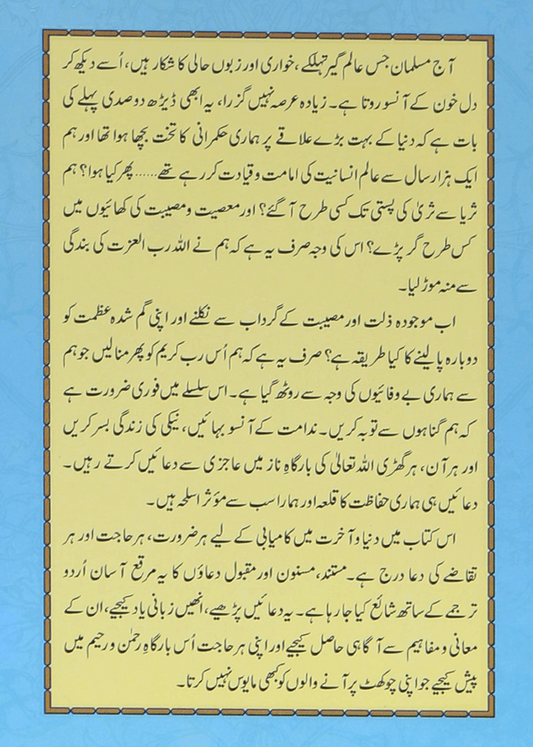 آج مسلمان جس عالم گیر تہلکے، خواری اور زبوں حالی کا شکار ہیں، اُسے دیکھ کر
دل خون کے آنسو روتا ہے۔ زیادہ عرصہ نہیں گزرا، یہ ابھی ڈیڑھ دو صدی پہلے کی
بات ہے کہ دنیا کے بہت بڑے علاقے پر ہماری حکمرانی کا تخت بچھا ہوا تھا اور ہم
ایک ہزار سال سے عالم انسانیت کی امامت و قیادت کر رہے تھے...... پھر کیا ہوا؟ ہم
ثریا سے ثریٰ کی پستی تک کس طرح آ گئے؟ اور معصیت و مصیبت کی کھائیوں میں
کس طرح گر پڑے؟ اس کی وجہ صرف یہ ہے کہ ہم نے اللہ رب العزت کی بندگی
سے منہ موڑ لیا۔
اب موجودہ ذلت اور مصیبت کے گرداب سے نکلنے اور اپنی گم شدہ عظمت کو
دوبارہ پا لینے کا کیا طریقہ ہے؟ صرف یہ ہے کہ ہم اُس رب کریم کو پھر منا لیں جو ہم
سے ہماری بے وفائیوں کی وجہ سے روٹھ گیا ہے۔ اس سلسلے میں فوری ضرورت ہے
کہ ہم گناہوں سے توبہ کریں۔ ندامت کے آنسو بہائیں، نیکی کی زندگی بسر کریں
اور ہر آن، ہر گھڑی اللہ تعالیٰ کی بارگاہِ ناز میں عاجزی سے دعائیں کرتے رہیں۔
دعائیں ہی ہماری حفاظت کا قلعہ اور ہمارا سب سے مؤثر اسلحہ ہیں۔
اس کتاب میں دنیا و آخرت میں کامیابی کے لیے ہر ضرورت، ہر حاجت اور ہر
تقاضے کی دعا درج ہے۔ مستند، مسنون اور مقبول دعاؤں کا یہ مرقع آسان اُردو
ترجمے کے ساتھ شائع کیا جا رہا ہے۔ یہ دعائیں پڑھیے، انھیں زبانی یاد کیجیے، ان کے
معانی و مفاہیم سے آگاہی حاصل کیجیے اور اپنی ہر حاجت اُس بارگاہِ رحمٰن و رحیم میں
پیش کیجیے جو اپنی چوکھٹ پر آنے والوں کو کبھی مایوس نہیں کرتا۔